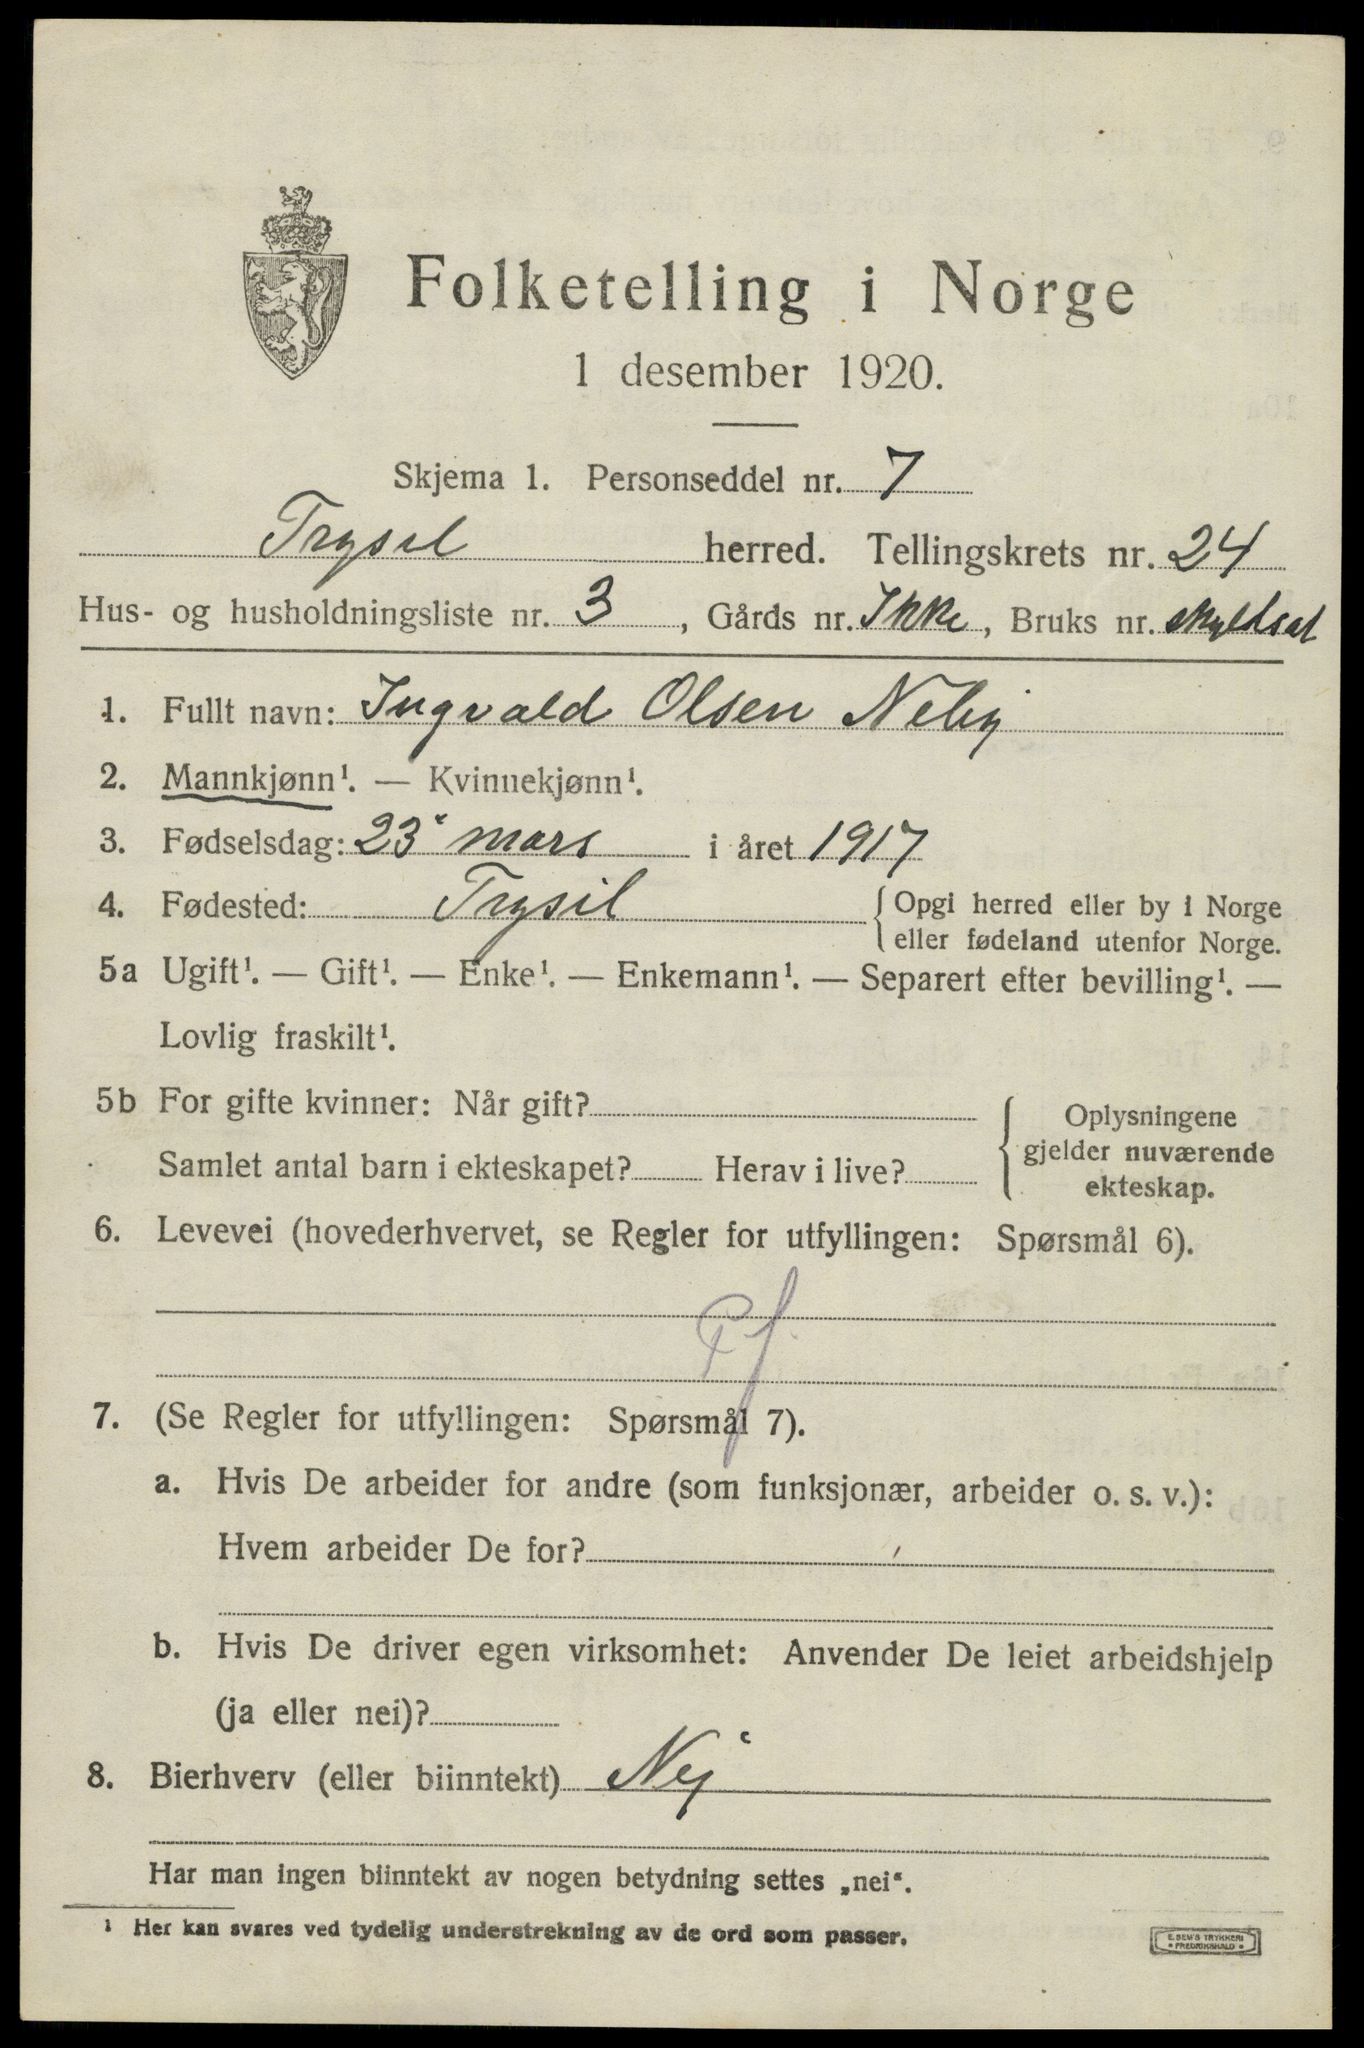 Folketelling i Norge
1 desember 1920.
Skjema 1. Personseddel nr. 7
Trysil herred. Tellingskrets nr. 24
Hus- og husholdningsliste nr. 3, Gårds nr. Ikke, Bruks nr. skyldsat
1. Fullt navn: Ingvald Olsen Neby
2. Mannkjønn¹. — Kvinnekjønn¹.
3. Fødselsdag: 23 mars i året 1917
4. Fødested: Trysil {Opgi herred eller by i Norge
eller fødeland utenfor Norge.
5a Ugift¹. — Gift¹. — Enke¹. — Enkemann¹. — Separert efter bevilling¹. —
Lovlig fraskilt¹.
5b For gifte kvinner: Når gift?
Samlet antal barn i ekteskapet? Herav i live?
Oplysningene
gjelder nuværende
ekteskap.
6. Levevei (hovederhvervet, se Regler for utfyllingen: Spørsmål 6).
7. (Se Regler for utfyllingen: Spørsmål 7).
a. Hvis De arbeider for andre (som funksjonær, arbeider o. s. v.):
Hvem arbeider De for?
b. Hvis De driver egen virksomhet: Anvender De leiet arbeidshjelp
(ja eller nei)?
8. Bierhverv (eller biinntekt) Nej
Har man ingen biinntekt av nogen betydning settes „nei“.
¹ Her kan svares ved tydelig understrekning av de ord som passer.
E. SEM'S TRYKKERI
• FREDRIKSHALD •